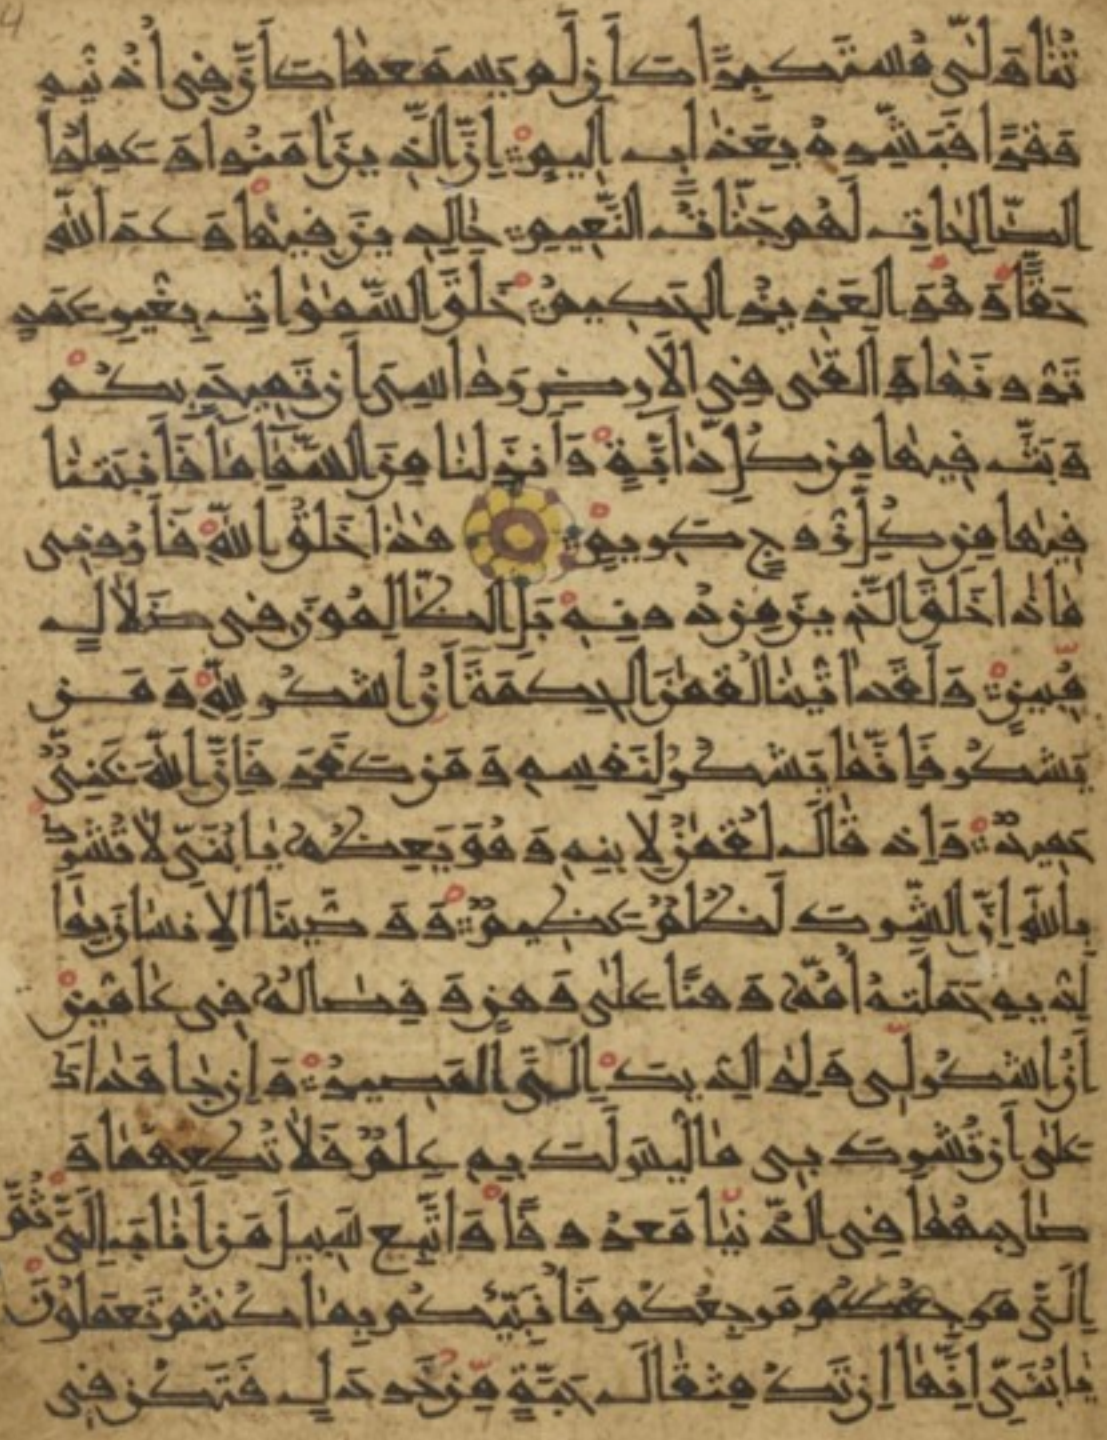 تنا ولى مستكبرا كان لم يسمعها كان في اذنيه
وقرا فبشره بعذاب اليم ان الذين امنوا وعملوا
الصالحات لهم جنات النعيم خالدين فيها وعد الله
حقا وهو العزيز الحكيم خلق السموات بغير عمد
ترونها والقى في الارض رواسي ان تميد بكم
وبث فيها من كل دابة وانزلنا من السماء ما فانبتنا
فيها من كل زوج كريم هذا خلق الله فاروني
ماذا خلق الذين من دونه بل الظالمون في ضلال
مبين ولقد اتينا لقمن الحكمة ان اشكر لله ومن
يشكر فانما يشكر لنفسه ومن كفر فان الله غني
حميد واذ قال لقمن لابنه وهو يعظه يا بني لا تشرك
بالله ان الشرك لظلم عظيم ووصينا الانسان بوا
لديه حملته امه وهنا على وهن وفصاله في عامين
ان اشكر لي ولوالديك الي المصير وان جاهداك
على ان تشرك بي ما ليس لك به علم فلا تطعهما و
صاحبهما في الدنيا معروفا واتبع سبيل من اناب الي ثم
الي مرجعكم مرجعكم فانبئكم بما كنتم تعملون
يا بني انها ان تك مثقال حبة من خردل فتكن في